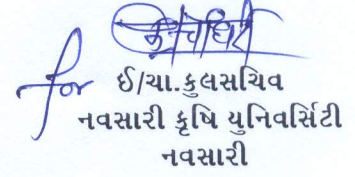 for ઈ/ચા.કુલસચિવ
નવસારી કૃષિ યુનિવર્સિટી
નવસારી